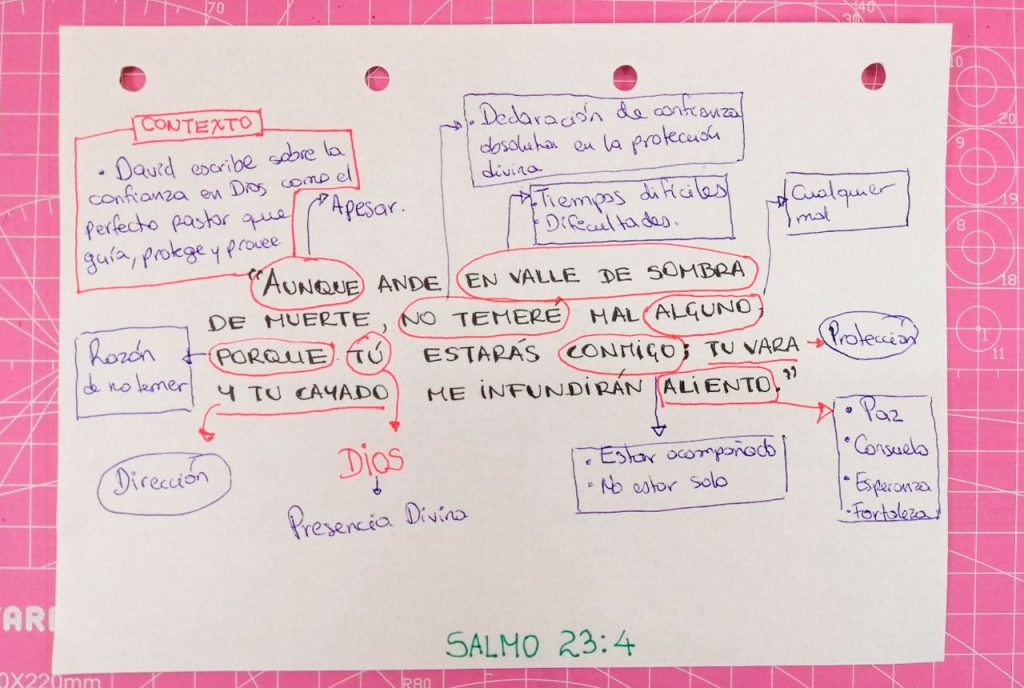 CONTEXTO
• David escribe sobre la
confianza en Dios como el
perfecto pastor que
guía, protege y provee
Apesar.
• Declaración de confianza
absoluta en la protección
divina
• Tiempos difíciles
• Dificultades.
Cualquier
mal
"AUNQUE ANDE EN VALLE DE SOMBRA
DE MUERTE, NO TEMERÉ MAL ALGUNO,
PORQUE TÚ ESTARÁS CONMIGO; TU VARA
Y TU CAYADO ME INFUNDIRÁN ALIENTO."
Razón
de no temer
Protección
Dirección
Dios
Presencia Divina
• Estar acompañado
• No estar solo
• Paz
• Consuelo
• Esperanza
• Fortaleza
SALMO 23:4
10
20
9
19
18
1
11
40
30
0X220mm
R80